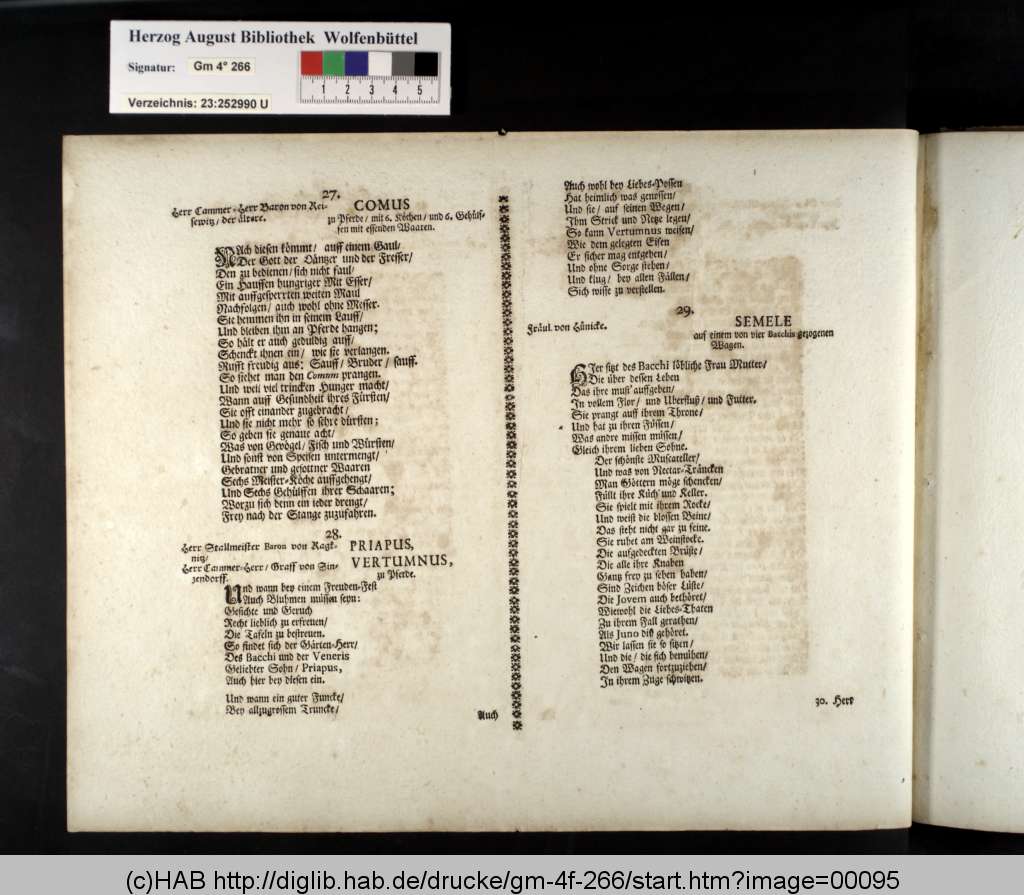 Herzog August Bibliothek Wolfenbüttel
Signatur: Gm 4° 266
Verzeichnis: 23:252990 U
1 2 3 4 5
27.
Herr Cammer-Herr Baron von Rei-
sewitz/ der ältere.
COMUS
zu Pferde/ mit 6. Köchen/ und 6. Gehülf-
fen mit essenden Waaren.
NAch diesen kömmt/ auff einem Gaul/
Der Gott der Däntzer und der Fresser/
Den zu bedienen/ sich nicht faul/
Ein Hauffen hungriger Mit Esser/
Mit auffgesperrten weiten Maul
Nachfolgen/ auch wohl ohne Messer.
Sie hemmen ihn in seinem Lauff/
Und bleiben ihm an Pferde hangen;
So hält er auch geduldig auff/
Schenckt ihnen ein/ wie sie verlangen.
Rufft freudig aus: Sauff/ Bruder/ sauff.
So siehet man den Comum prangen.
Und weil viel trincken Hunger macht/
Wann auff Gesundheit ihres Fürsten/
Sie offt einander zugebracht/
Und sie nicht mehr so sehre dürsten;
So geben sie genaue acht/
Was von Gevögel/ Fisch und Würsten/
Und sonst von Speisen untermengt/
Gebratner und gesottner Waaren
Sechs Meister-Köche auffgehengt/
Und Sechs Gehülffen ihrer Schaaren;
Worzu sich denn ein ieder drengt/
Frey nach der Stange zuzufahren.
28.
Herr Stallmeister Baron von Ragk-
nitz/
Herr Cammer-Herr/ Graff von Sin-
zendorff.
PRIAPUS,
VERTUMNUS,
zu Pferde.
Und wann bey einem Freuden-Fest
Auch Bluhmen müssen seyn:
Gesichte und Geruch
Recht lieblich zu erfreuen/
Die Tafeln zu bestreuen.
So findet sich der Gärten-Herr/
Des Bacchi und der Veneris
Geliebter Sohn/ Priapus,
Auch hier bey diesen ein.
Und wann ein guter Funcke/
Bey allzugrossem Truncke/
Auch
Auch wohl bey Liebes-Possen
Hat heimlich was genossen/
Und sie/ auf seinen Wegen/
Ihm Strick und Netze legen/
So kann Vertumnus weisen/
Wie dem gelegten Eisen
Er sicher mag entgehen/
Und ohne Sorge stehen/
Und klug/ bey allen Fällen/
Sich wisse zu verstellen.
29.
Fräul. von Hünicke.
SEMELE
auf einem von vier Bacchis gezogenen
Wagen.
HIer sitzt des Bacchi löbliche Frau Mutter/
Die über dessen Leben
Das ihre must' auffgeben/
In vollem Flor/ und Uberfluß/ und Futter.
Sie prangt auff ihrem Throne/
Und hat zu ihren Füssen/
Was andre missen müssen/
Gleich ihrem lieben Sohne.
Der schönste Muscateller/
Und was von Nectar-Träncken
Man Göttern möge schencken/
Füllt ihre Küch' und Keller.
Sie spielt mit ihrem Rocke/
Und weist die blossen Beine/
Das steht nicht gar zu feine.
Sie ruhet am Weinstocke.
Die aufgedeckten Brüste/
Die alle ihre Knaben
Gantz frey zu sehen haben/
Sind Zeichen böser Lüste/
Die Jovem auch bethöret/
Wiewohl die Liebes-Thaten
Zu ihrem Fall gerathen/
Als Juno diß gehöret.
Wir lassen sie so sitzen/
Und die/ die sich bemühen/
Den Wagen fortzuziehen/
In ihrem Zuge schwitzen.
30. Herr
(c)HAB http://diglib.hab.de/drucke/gm-4f-266/start.htm?image=00095